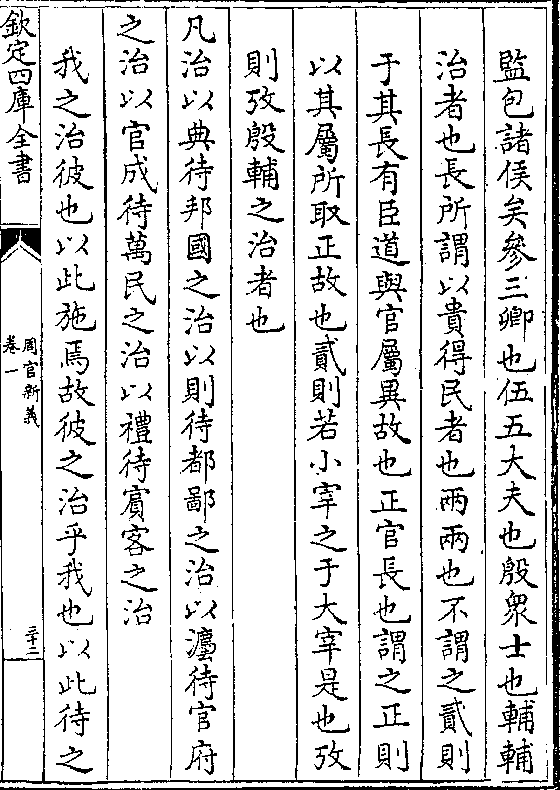 監包諸侯矣參三卿也伍五大夫也殷衆士也輔輔
治者也長所謂以貴得民者也兩兩也不謂之貳則
于其長有臣道與官屬異故也正官長也謂之正則
以其屬所取正故也貳則若小宰之于大宰是也攷
則攷殷輔之治者也
凡治以典待邦國之治以則待都鄙之治以灋待官府
之治以官成待萬民之治以禮待賔客之治
我之治彼也以此施焉故彼之治乎我也以此待之
欽定四庫全書
周官新義
卷一
三十二